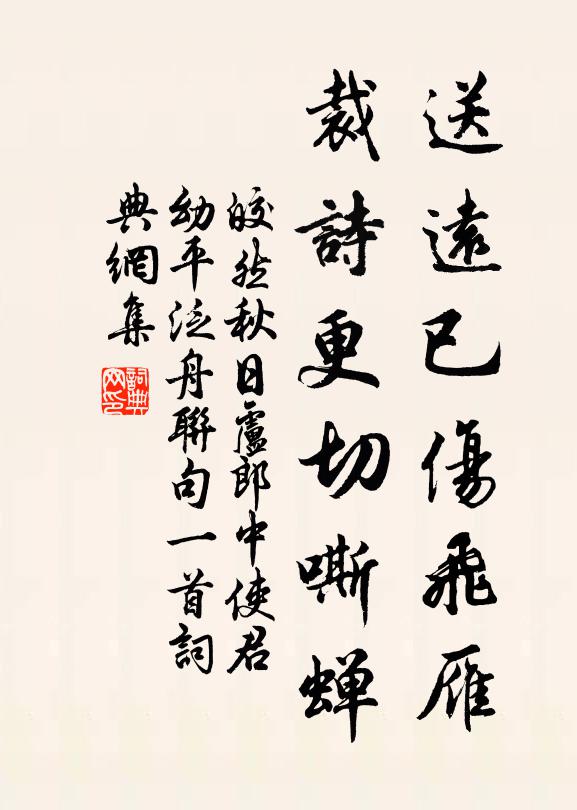 送遠已傷飛雁
裁詩更切嘶蝉
皎然秋日盧郎中使君
幼平泛舟聯句一首詞
典網集
詞典
网印